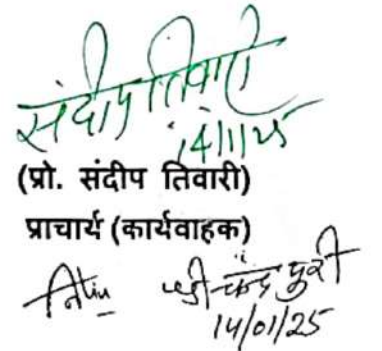 संदीप तिवारी
14/1/25
(प्रो. संदीप तिवारी)
प्राचार्य (कार्यवाहक)
चन्द्र पुरी
14/01/25